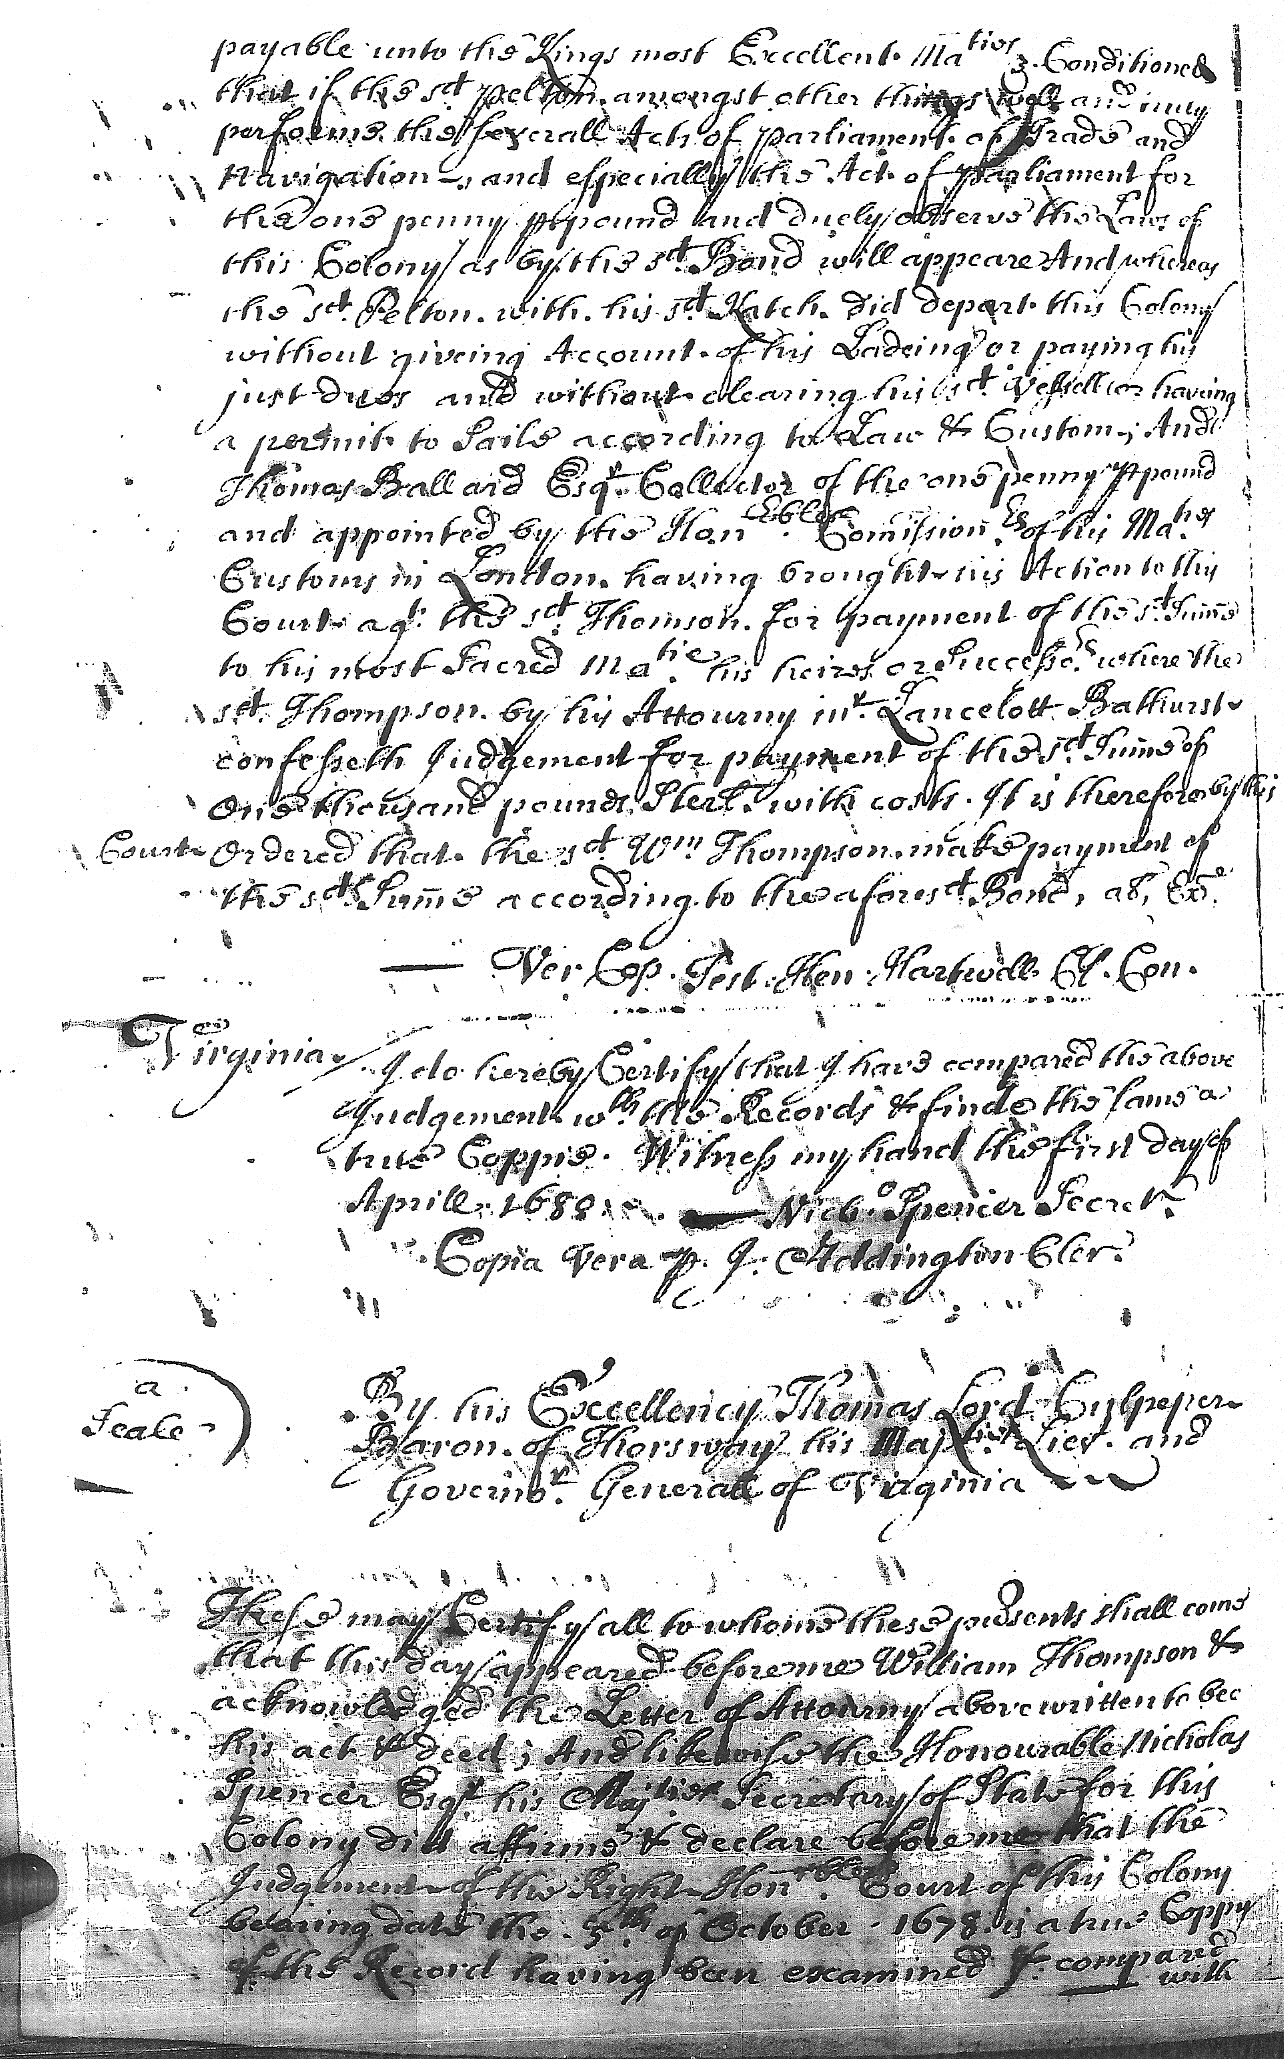 payable unto the Kings most Excellent Ma^ties Conditioned
that if the s^d Pelton amongst other things well and truly
performe the severall Acts of Parliament of Trade and
Navigation, and especially the Act of Parliament for
the one penny p pound and duely observe the Laws of
this Colony as by the s^d Bond will appeare And whereas
the s^d Pelton with his s^d Katch did depart this Colony
without giveing Account of his Ladeing or paying his
just dues and without clearing his s^d Vessell or haveing
a permit to Saile according to Law & Custom; And
Thomas Ballard Esq^r Collector of the one penny p pound
and appointed by the Hon^ble Comission^rs of his Ma^ties
Customs in London having brought his Action to this
Court ag^t the s^d Thomson for payment of the s^d Sum̄e
to his most Sacred Ma^tie his heires or Success^rs where the
s^d Thompson by his Attourny m^r Lancelott Bathurst
confesseth Judgement for payment of the s^d Sum̄e of
One thousand pounds Sterl. with costs. It is therefore by this
Court Ordered that the s^d W^m Thompson make payment of
the s^d Sum̄e according to the afores^d Bond, als Ex^e
Ver Cop. Test Hen Hartwell Cl. Con.
Virginia
I do hereby Certify that I have compared the above
Judgement w^th the Records & finde the same a
true Coppie. Witness my hand the first day of
Aprill 1680 Nich^o Spencer Secret^r
Copia Vera p J: Addington Cler^:
a
Seale
By his Excellency Thomas Lord Culpeper
Baron of Thorsway his Maj^ties Liev^t and
Governo^r Generall of Virginia
These may Certify all to whome these presents shall come
that this day appeared before me William Thompson &
acknowledged the Letter of Attourny above written to bee
his act & deed; And likewise the Honourable Nicholas
Spencer Esq^r his Maj^ties Secretary of State for this
Colony did affirme & declare before me that the
Judgement of the Right Hon^rble Court of this Colony
bearing date the 5^th of October 1678 is a true Coppy
of the Record having been examined & compared
with